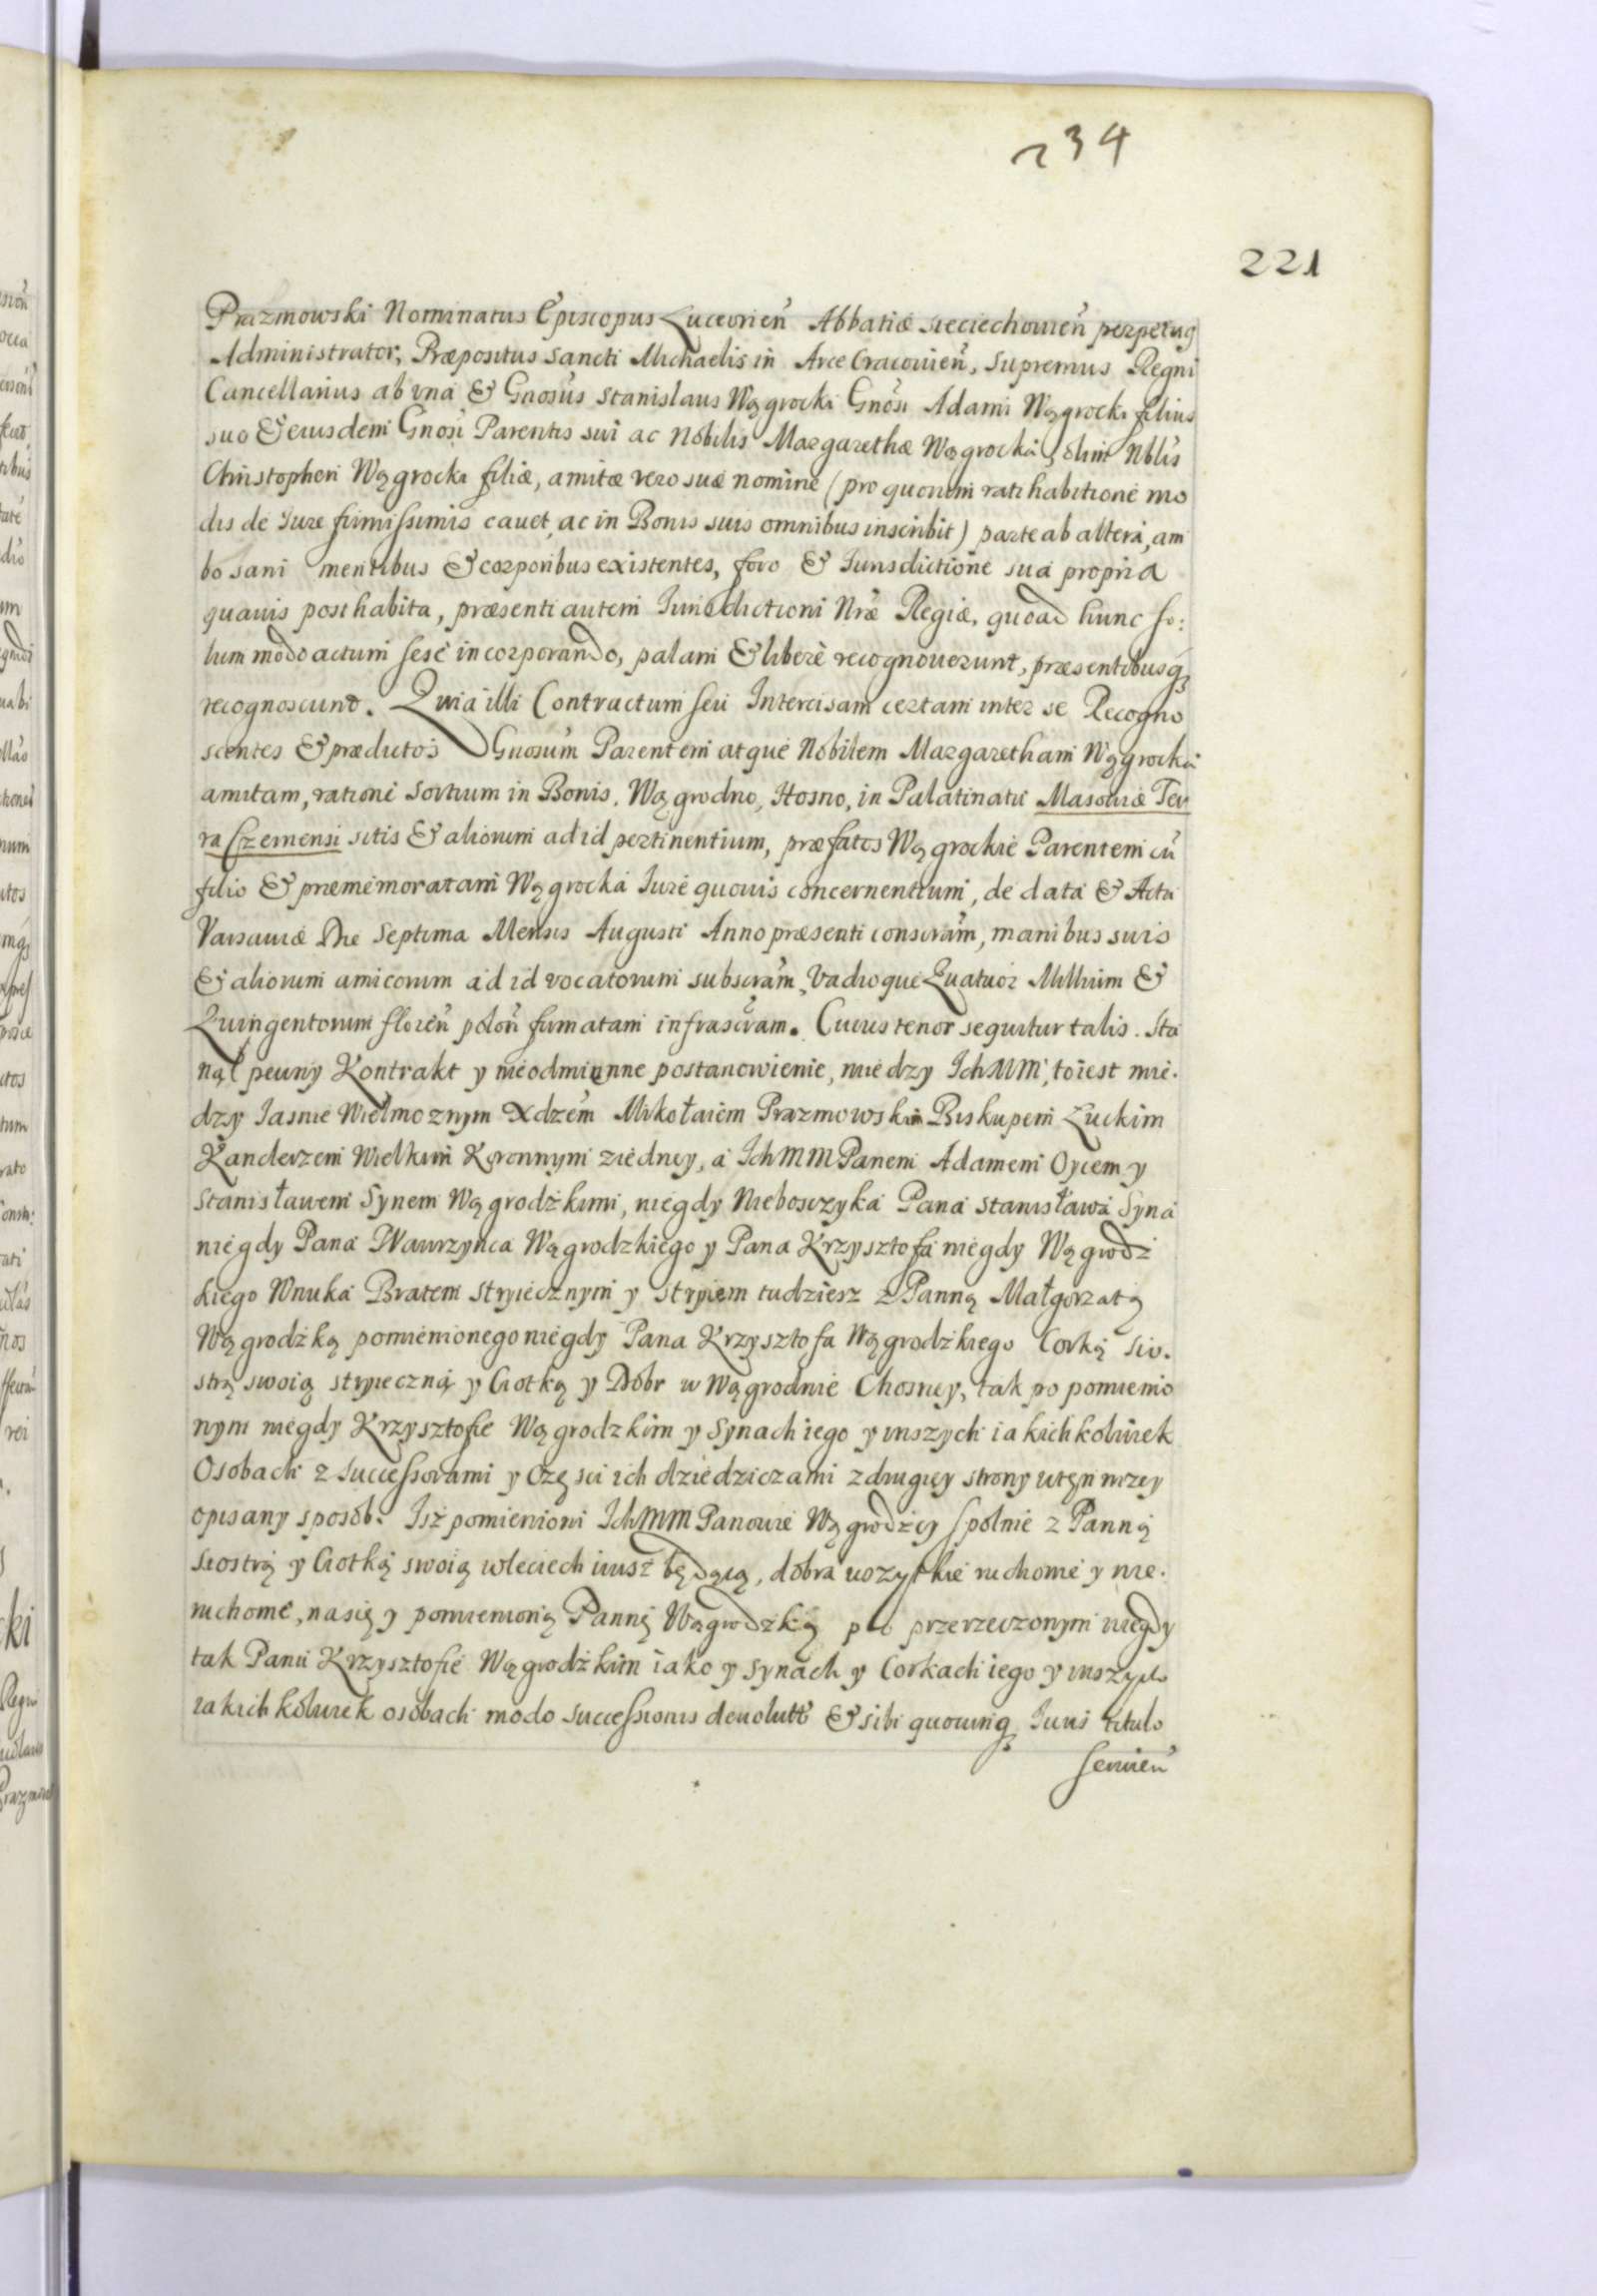 234
221
Prazmowski Nominatus Episcopus Luceorień Abbatiæ Sieciechouień perpetuq
Administrator, Præpositus Sancti Michaelis in Arce Cracouień, Supremus Regni
Cancellarius ab vna & Gnosus Stanislaus Wągrocki Gnosi Adami Wągrocki filius
suo & eiusdem Gnosi Parentis sui ac Nobilis Margarethæ Wągrocka, olim Nblis
Christopheri Wągrocki filiæ, amitæ vero suæ nomine (pro quorum rati habitione mo
dis de Iure firmissimis cauet, ac in Bonis suis omnibus inscribit) parte ab altera, am
bo sani mentibus & corporibus existentes, foro & Iurisdictione sua propria
quauis posthabita, præsenti autem Iurisdictioni Nræ Regiæ, quoad hunc so:
lum modo actum sese incorporando, palam & liberè recognouerunt, præsentibusq
recognoscunt. Quia illi Contractum seu Intercisam certam inter se Recogno
scentes & prædictos Gnosum Parentem atque Nobilem Margaretham Wągrocka
amitam, ratione Sortium in Bonis. Wągrodno, Hosno, in Palatinatu Masouiæ Ter
ra Czernensi sitis & aliorum ad id pertinentium, præfatos Wągrockie Parentem cū
filio & præmemoratam Wągrocka Iure quouis concernentium, de data & Acta
Varsauiæ Die Septima Mensis Augusti Anno præsenti conscram, manibus suis
& aliorum amicorum ad id vocatorum subscram, Vadioque Quatuor Millium &
Quingentorum floreń poloń firmatam infrascram. Cuius tenor sequitur talis. Sta
nął peuny Kontrakt y nieodmienne postanowienie, miedzy IchMM, to iest mie.
dzy Iasnie Wielmoznym Xdzem Mikołaiem Prazmowskim Biskupem Łuckim
Kanclerzem Wielkim Koronnym ziedney, a IchMM Panem Adamem Oycem y
Stanisławem Synem Wągrodzkimi, niegdy Nieboszyka Pana Stanisława Syna
niegdy Pana Wawrzynca Wągrodzkiego y Pana Krzysztofa niegdy Wągrodz
kiego Wnuka Bratem stryiecznym y stryiem tudziesz z Panną Małgorzatą
Wągrodzką pomienionego niegdy Pana Krzysztofa Wągrodzkiego Corką Sio.
strą swoią stryieczną y Ciotką y Dobr w Wągrodnie Chosney, tak po pomienio
nym niegdy Krzysztofie Wągrodzkim y Synach iego y inszych iakichkolwiek
Osobach z Successorami y Części ich dziedziczami zdrugiey strony wten nizey
opisany sposob. Isz pomienioni IchMM Panowie Wągrodzcy spolnie z Panną
Siostrą y Ciotką swoią wleciech iusz będącą, dobra wszytkie ruchome y nie.
ruchome, nasię y pomienioną Pannę Wągrodzką po przerzeczonym niegdy
tak Panu Krzysztofie Wągrodzkim iako y Synach y Corkach iego y inszych
iakichkolwiek osobach modo Successionis deuolutt & sibi quocunq Iuris titulo
seruień